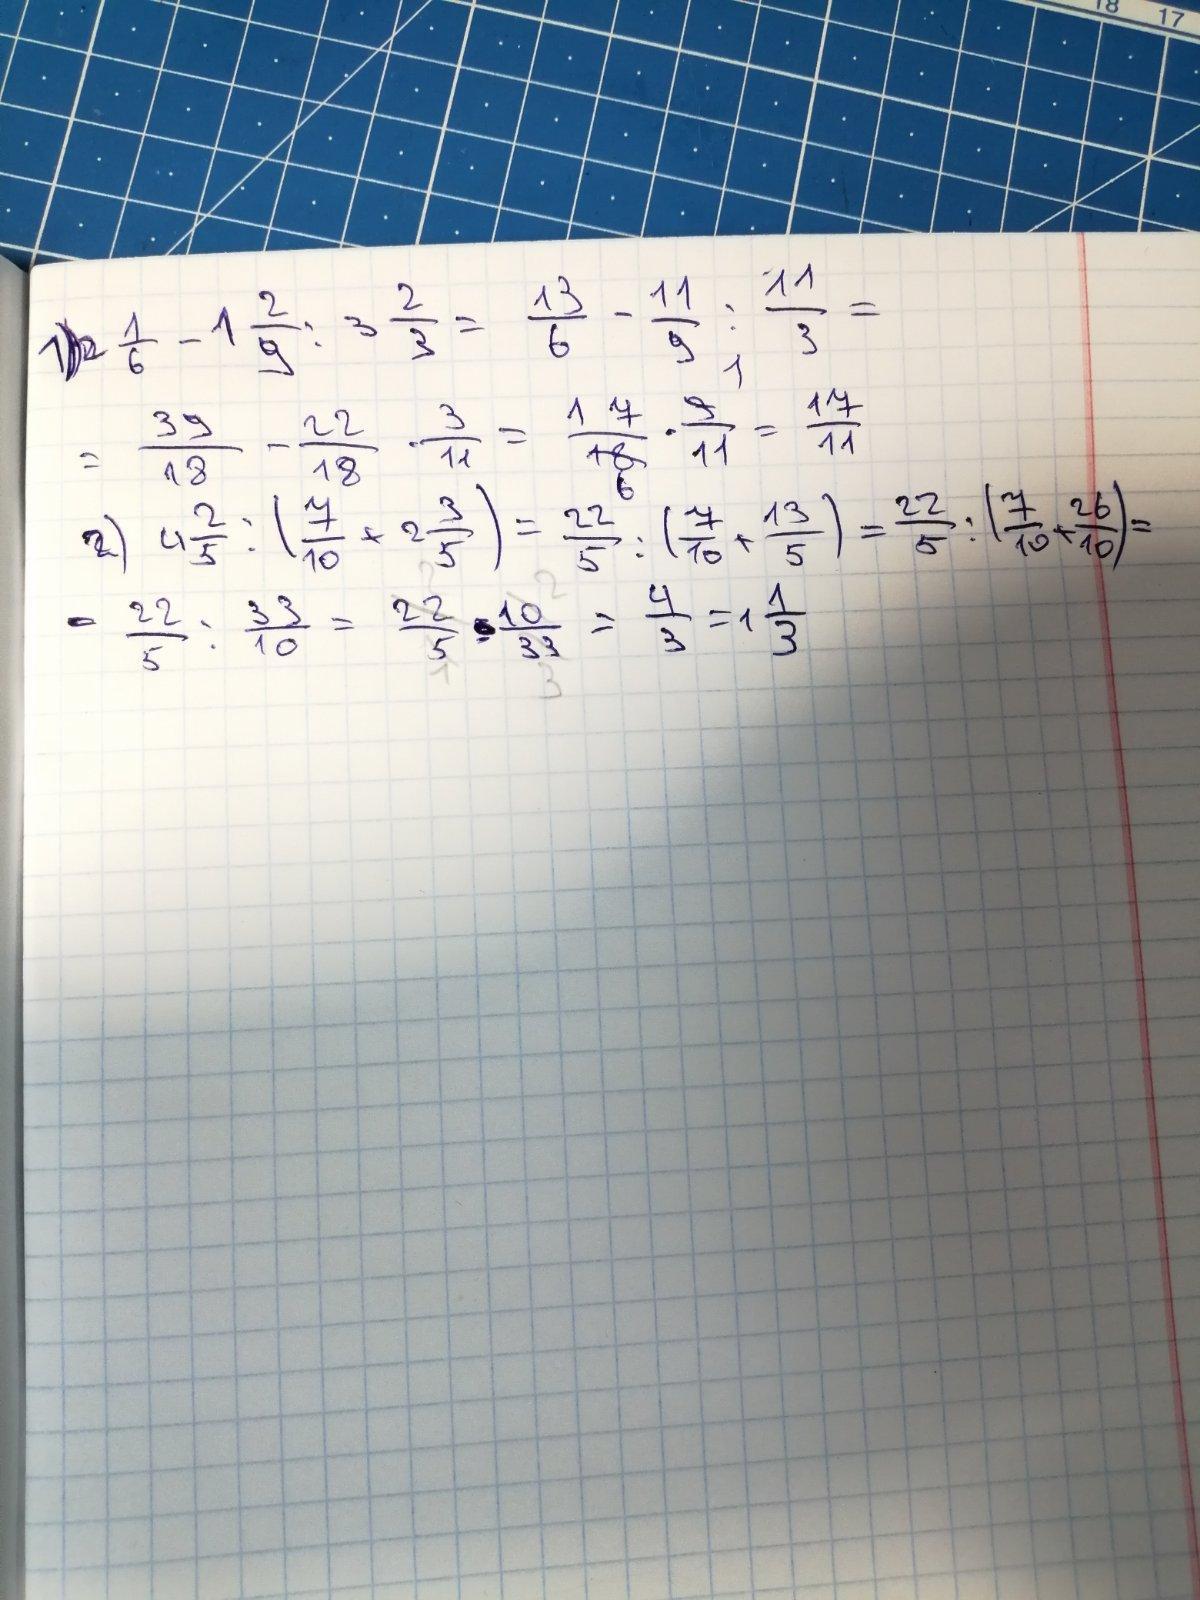 18 17
1) 2 1/6 - 1 2/9 : 3 2/3 = 13/6 - 11/9 : 11/3 =
= 39/18 - 22/18 · 3/11 = 17/18 · 3/11 = 17/11
1
6
2) 4 2/5 : (7/10 + 2 3/5) = 22/5 : (7/10 + 13/5) = 22/5 : (7/10 + 26/10) =
- 22/5 : 33/10 = 22/5 · 10/33 = 4/3 = 1 1/3
2 2
1 3